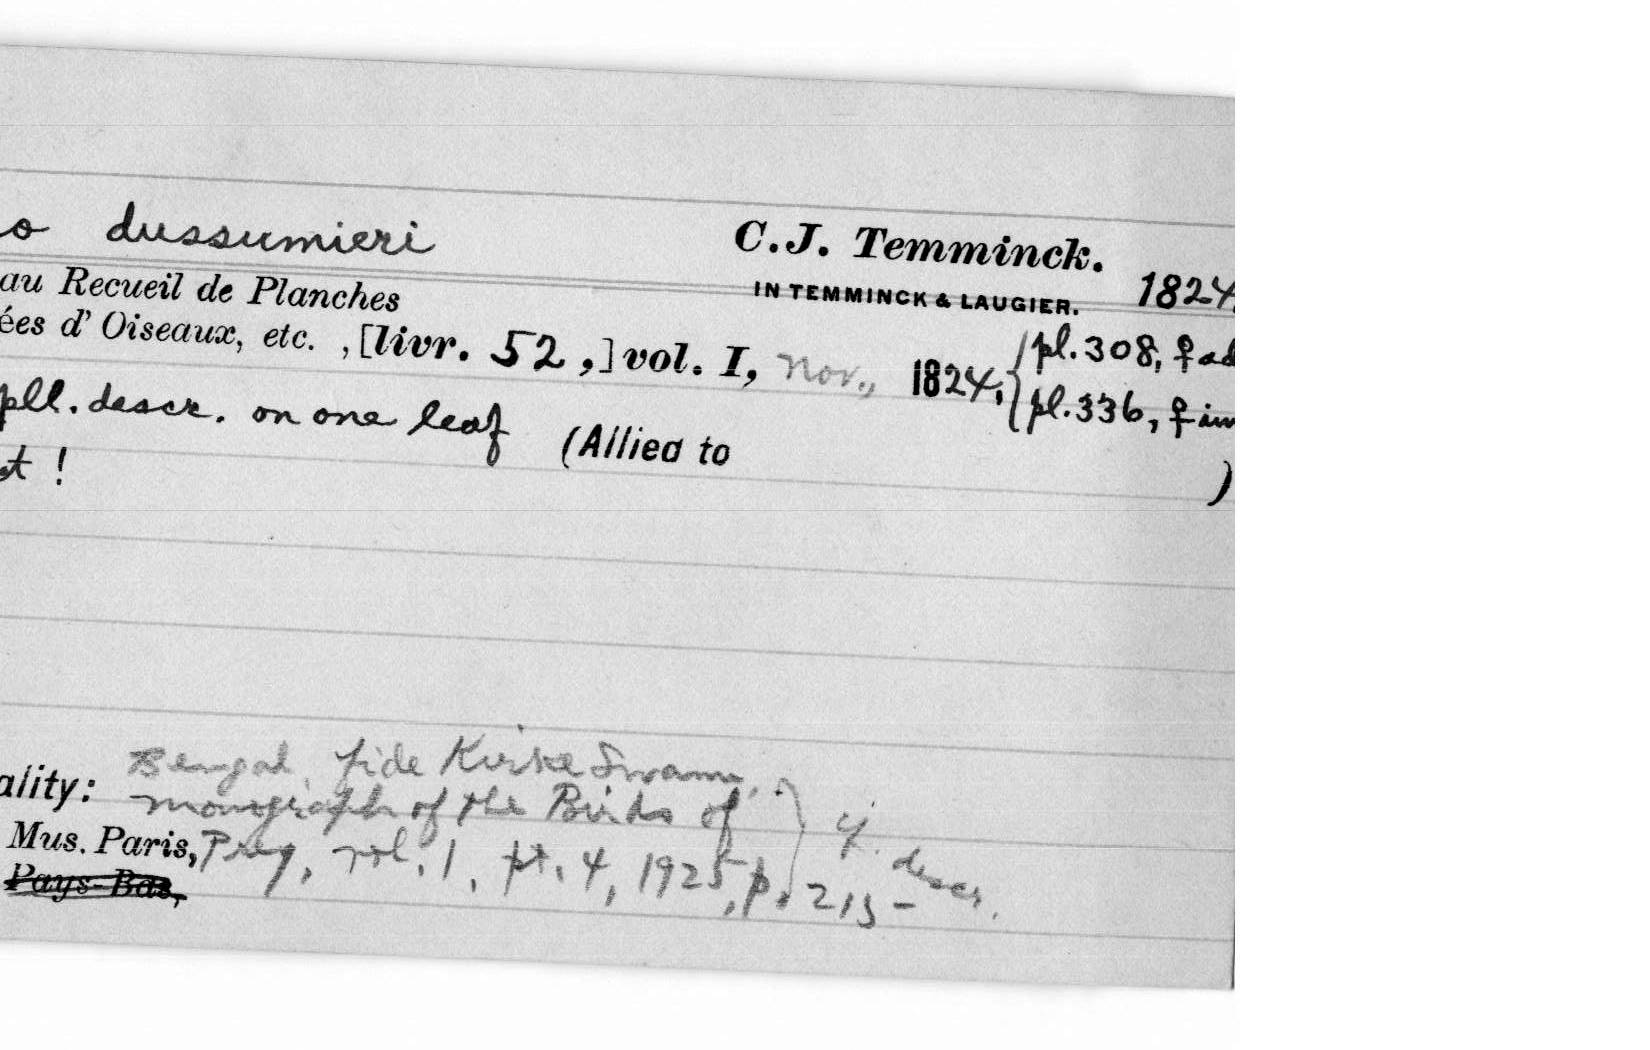 o dussumieri C.J. Temminck. 1824.
au Recueil de Planches IN TEMMINCK & LAUGIER.
ées d' Oiseaux, etc. , [livr. 52 ,] vol. I, Nov., 1824, { pl. 308, ♀ ad
pl. 336, ♀ im
pll. descr. on one leaf (Allied to )
t !
ality: Bengal, fide Kirke Swann,
monograph of the Birds of
Mus. Paris, Prey, vol. 1, pt. 4, 1925, p. 213 - cf. descr.
Pays-Bas,